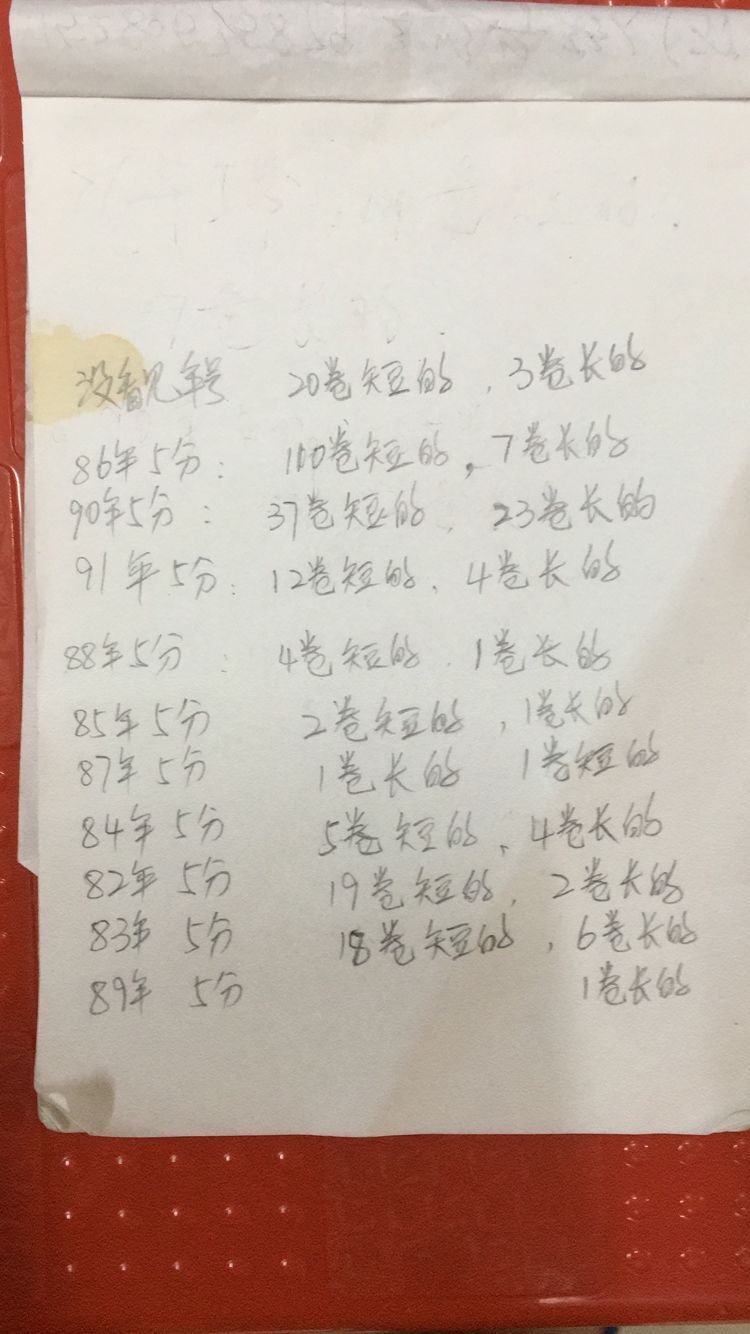 没看见年号 20卷短的，3卷长的
86年5分： 100卷短的，7卷长的
90年5分： 37卷短的、23卷长的
91年5分： 12卷短的、4卷长的
88年5分： 4卷短的、1卷长的
85年5分 2卷短的，1卷长的
87年5分 1卷长的 1卷短的
84年5分 5卷短的、4卷长的
82年5分 19卷短的、2卷长的
83年 5分 18卷短的，6卷长的
89年 5分 1卷长的